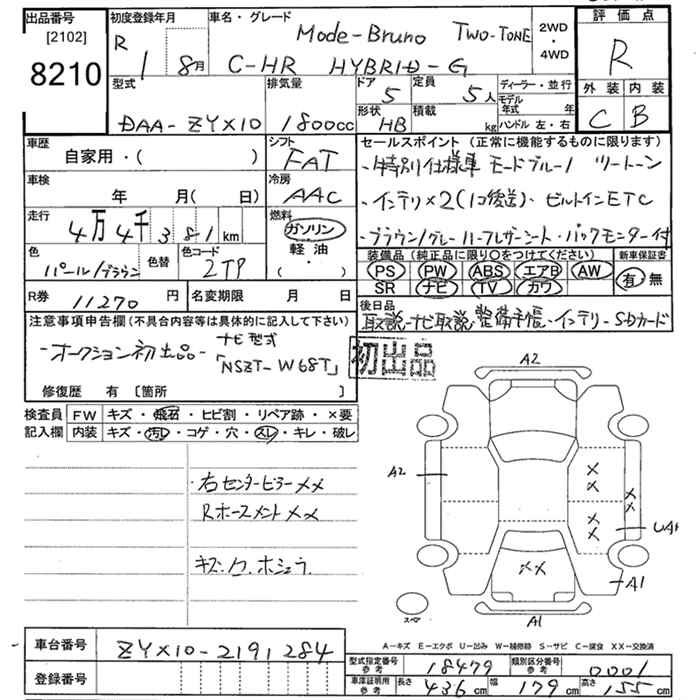 出品番号
[2102]
8210
初度登録年月
R 1 8月
車名・グレード
Mode-Bruno Two-Tone
C-HR HYBRID-G
2WD
・
4WD
評価点
R
外装 内装
C B
型式
DAA-ZYX10
排気量
1800cc
ドア
5
定員
5人
形状
HB
積載
kg
ディーラー・並行
モデル年式 年
ハンドル 左・右
車歴
自家用・( )
シフト
FAT
車検
年 月( 日)
冷房
AAC
走行
4万4千381km
燃料
ガソリン
軽油
・( )
色
パール/ブラウン
色替
色コード
2TP
R券 11270 円
名変期限 月 日
セールスポイント(正常に機能するものに限ります)
・特別仕様車 モードブルーノ ツートーン
・インテリ×2(1コ後送)・ビルトインETC
・ブラウン/グレーハーフレザーシート・バックモニター付
装備品(純正品に限り○をつけてください)
PS PW ABS エアB AW
SR ナビ TV カワ
新車保証書
有・無
後日品
取説・ナビ取説、整備手帳・インテリ・SDカード
注意事項申告欄(不具合内容等は具体的に記入して下さい)
・オークション初出品・
ナビ型式
「NSZT-W68T」
修復歴 有〔箇所 〕
初出品
検査員
記入欄
FW キズ・飛石・ヒビ割・リペア跡・×要
内装 キズ・汚レ・コゲ・穴・スレ・キレ・破レ
・右センターピラーXX
Rホースメント XX
キズ・凹・ホシュウ
A2
A2
XX
XX
XX
XX
UA1
A1
A1
スペア
A-キズ E-エクボ U-凹み W-補修跡 S-サビ C-腐食 XX-交換済
車台番号
ZYX10-2191284
登録番号
型式指定番号
参考
18479
類別区分番号
参考
0001
車庫証明用
参考
長さ 436cm 幅 179cm 高さ 155cm